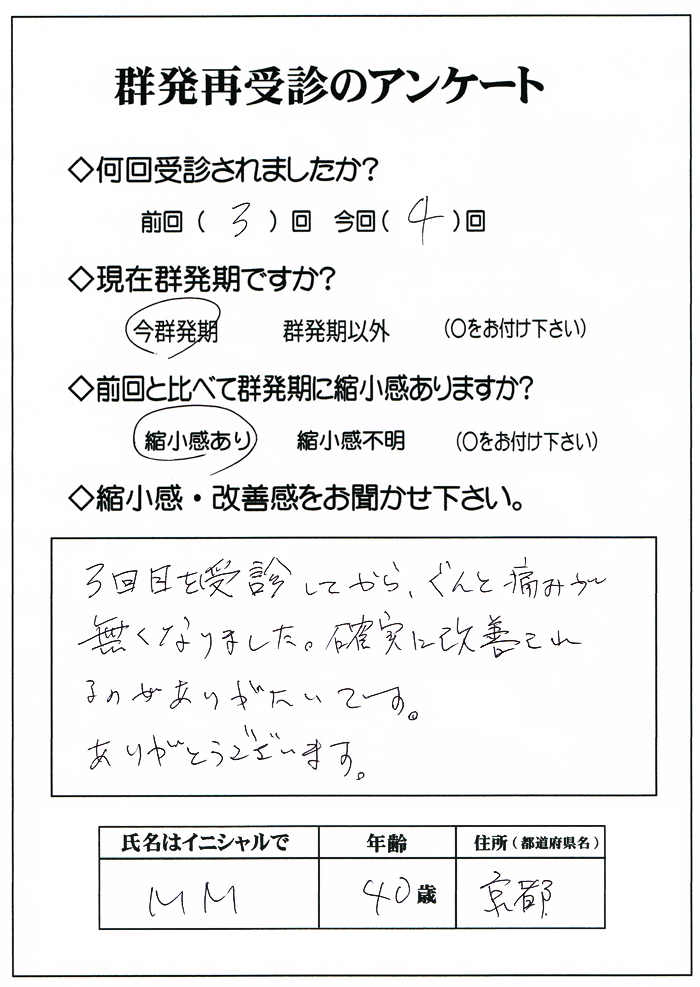 群発再受診のアンケート
◇何回受診されましたか?
前回 ( 3 ) 回　今回( 4 )回
◇現在群発期ですか?
今群発期　群発期以外　(○をお付け下さい)
◇前回と比べて群発期に縮小感ありますか?
縮小感あり　縮小感不明　(○をお付け下さい)
◇縮小感・改善感をお聞かせ下さい。
3回目を受診してから、ぐんと痛みが
無くなりました。確実に改善され
るのがありがたいです。
ありがとうございます。
氏名はイニシャルで　年齢　住所(都道府県名)
MM　40歳　京都